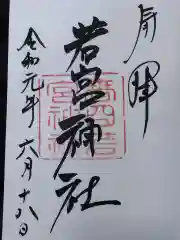 奉拝
若宮神社
令和元年六月十八日